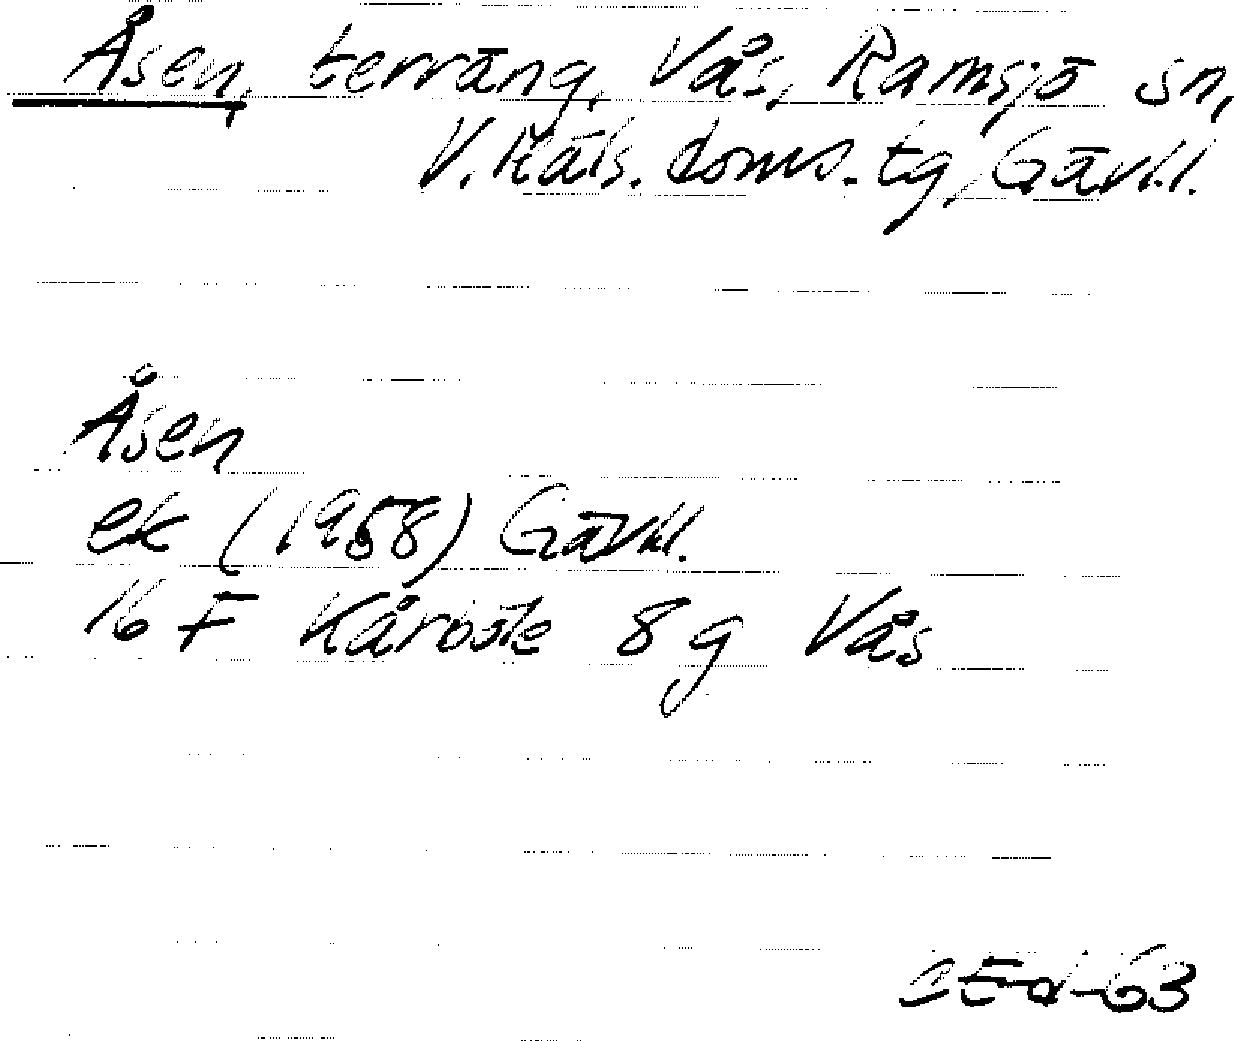 Åsen, terräng, Vås, Ramsjö sn,
V. Häls. doms. tg, Gävl.l.
Åsen
ek (1958) Gävl.l.
16 F Kårböle 8 g Vås